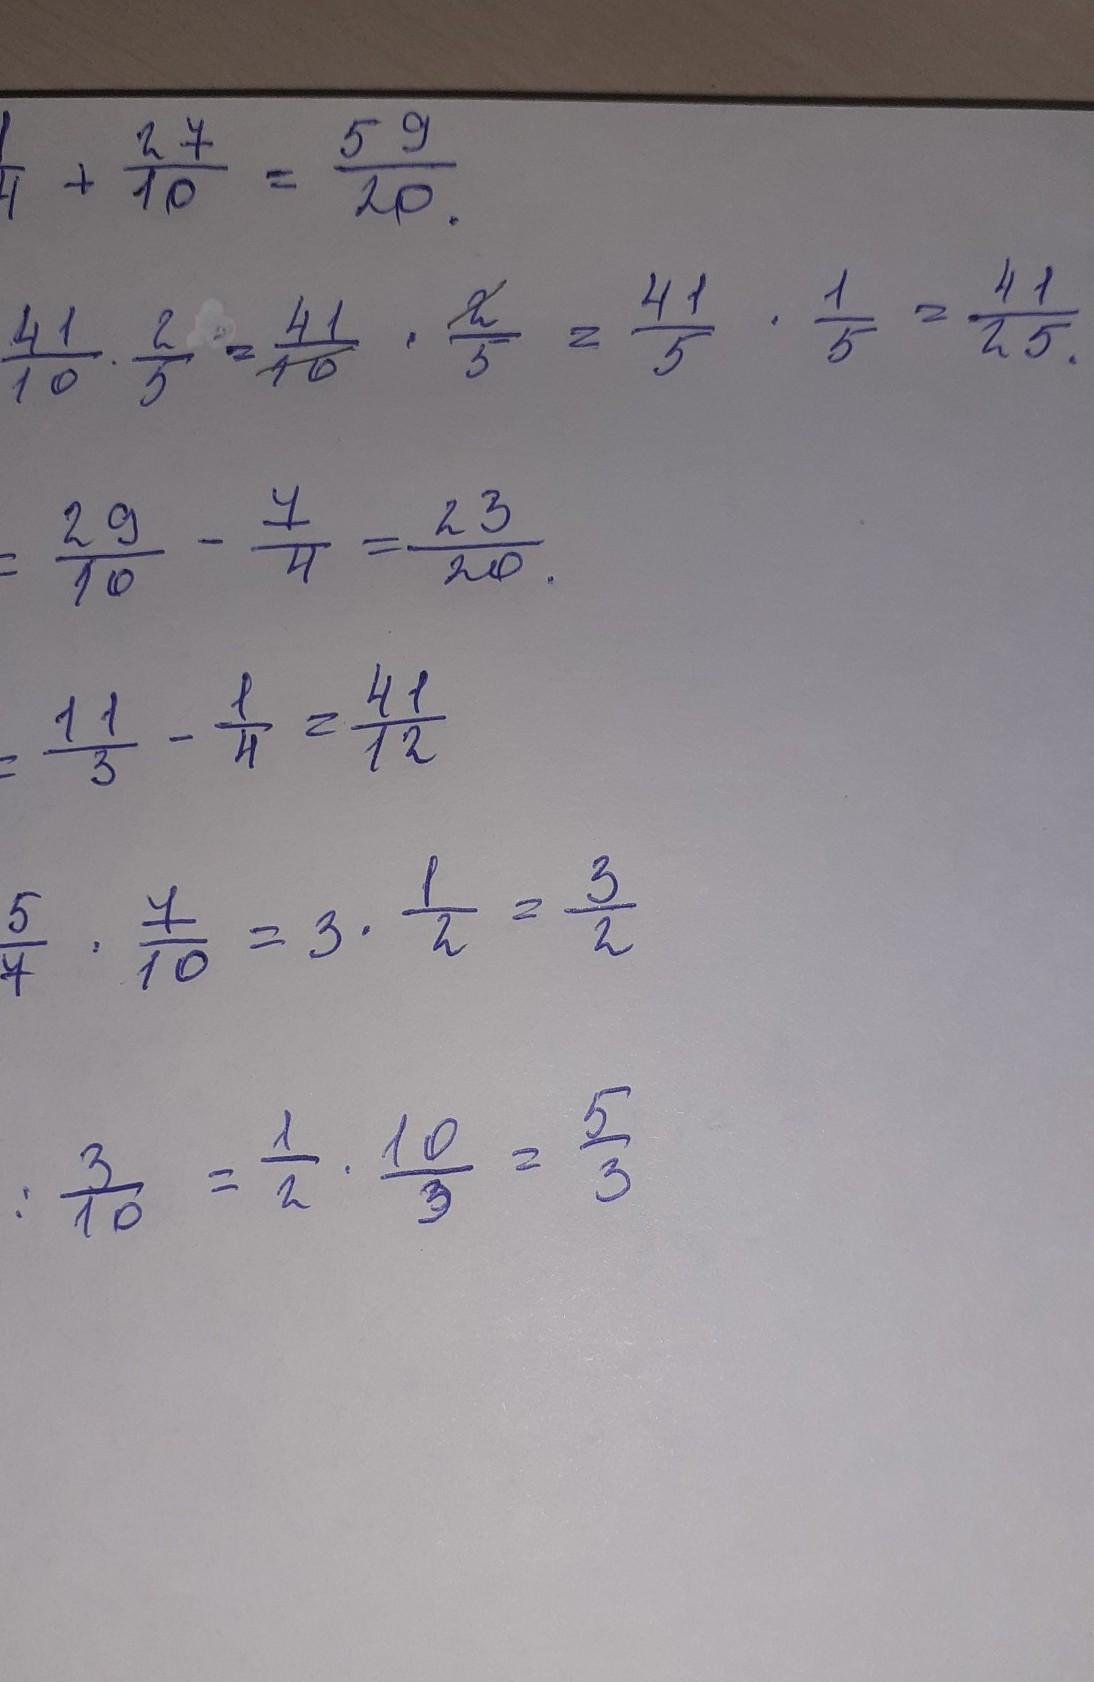 1/4 + 27/10 = 59/20.
41/10 · 2/5 = 41/10 · 2/5 = 41/5 · 1/5 = 41/25.
= 29/10 - 7/4 = 23/20.
= 11/3 - 1/4 = 41/12
5/7 · 7/10 = 3 · 1/2 = 3/2
: 3/10 = 1/2 · 10/3 = 5/3